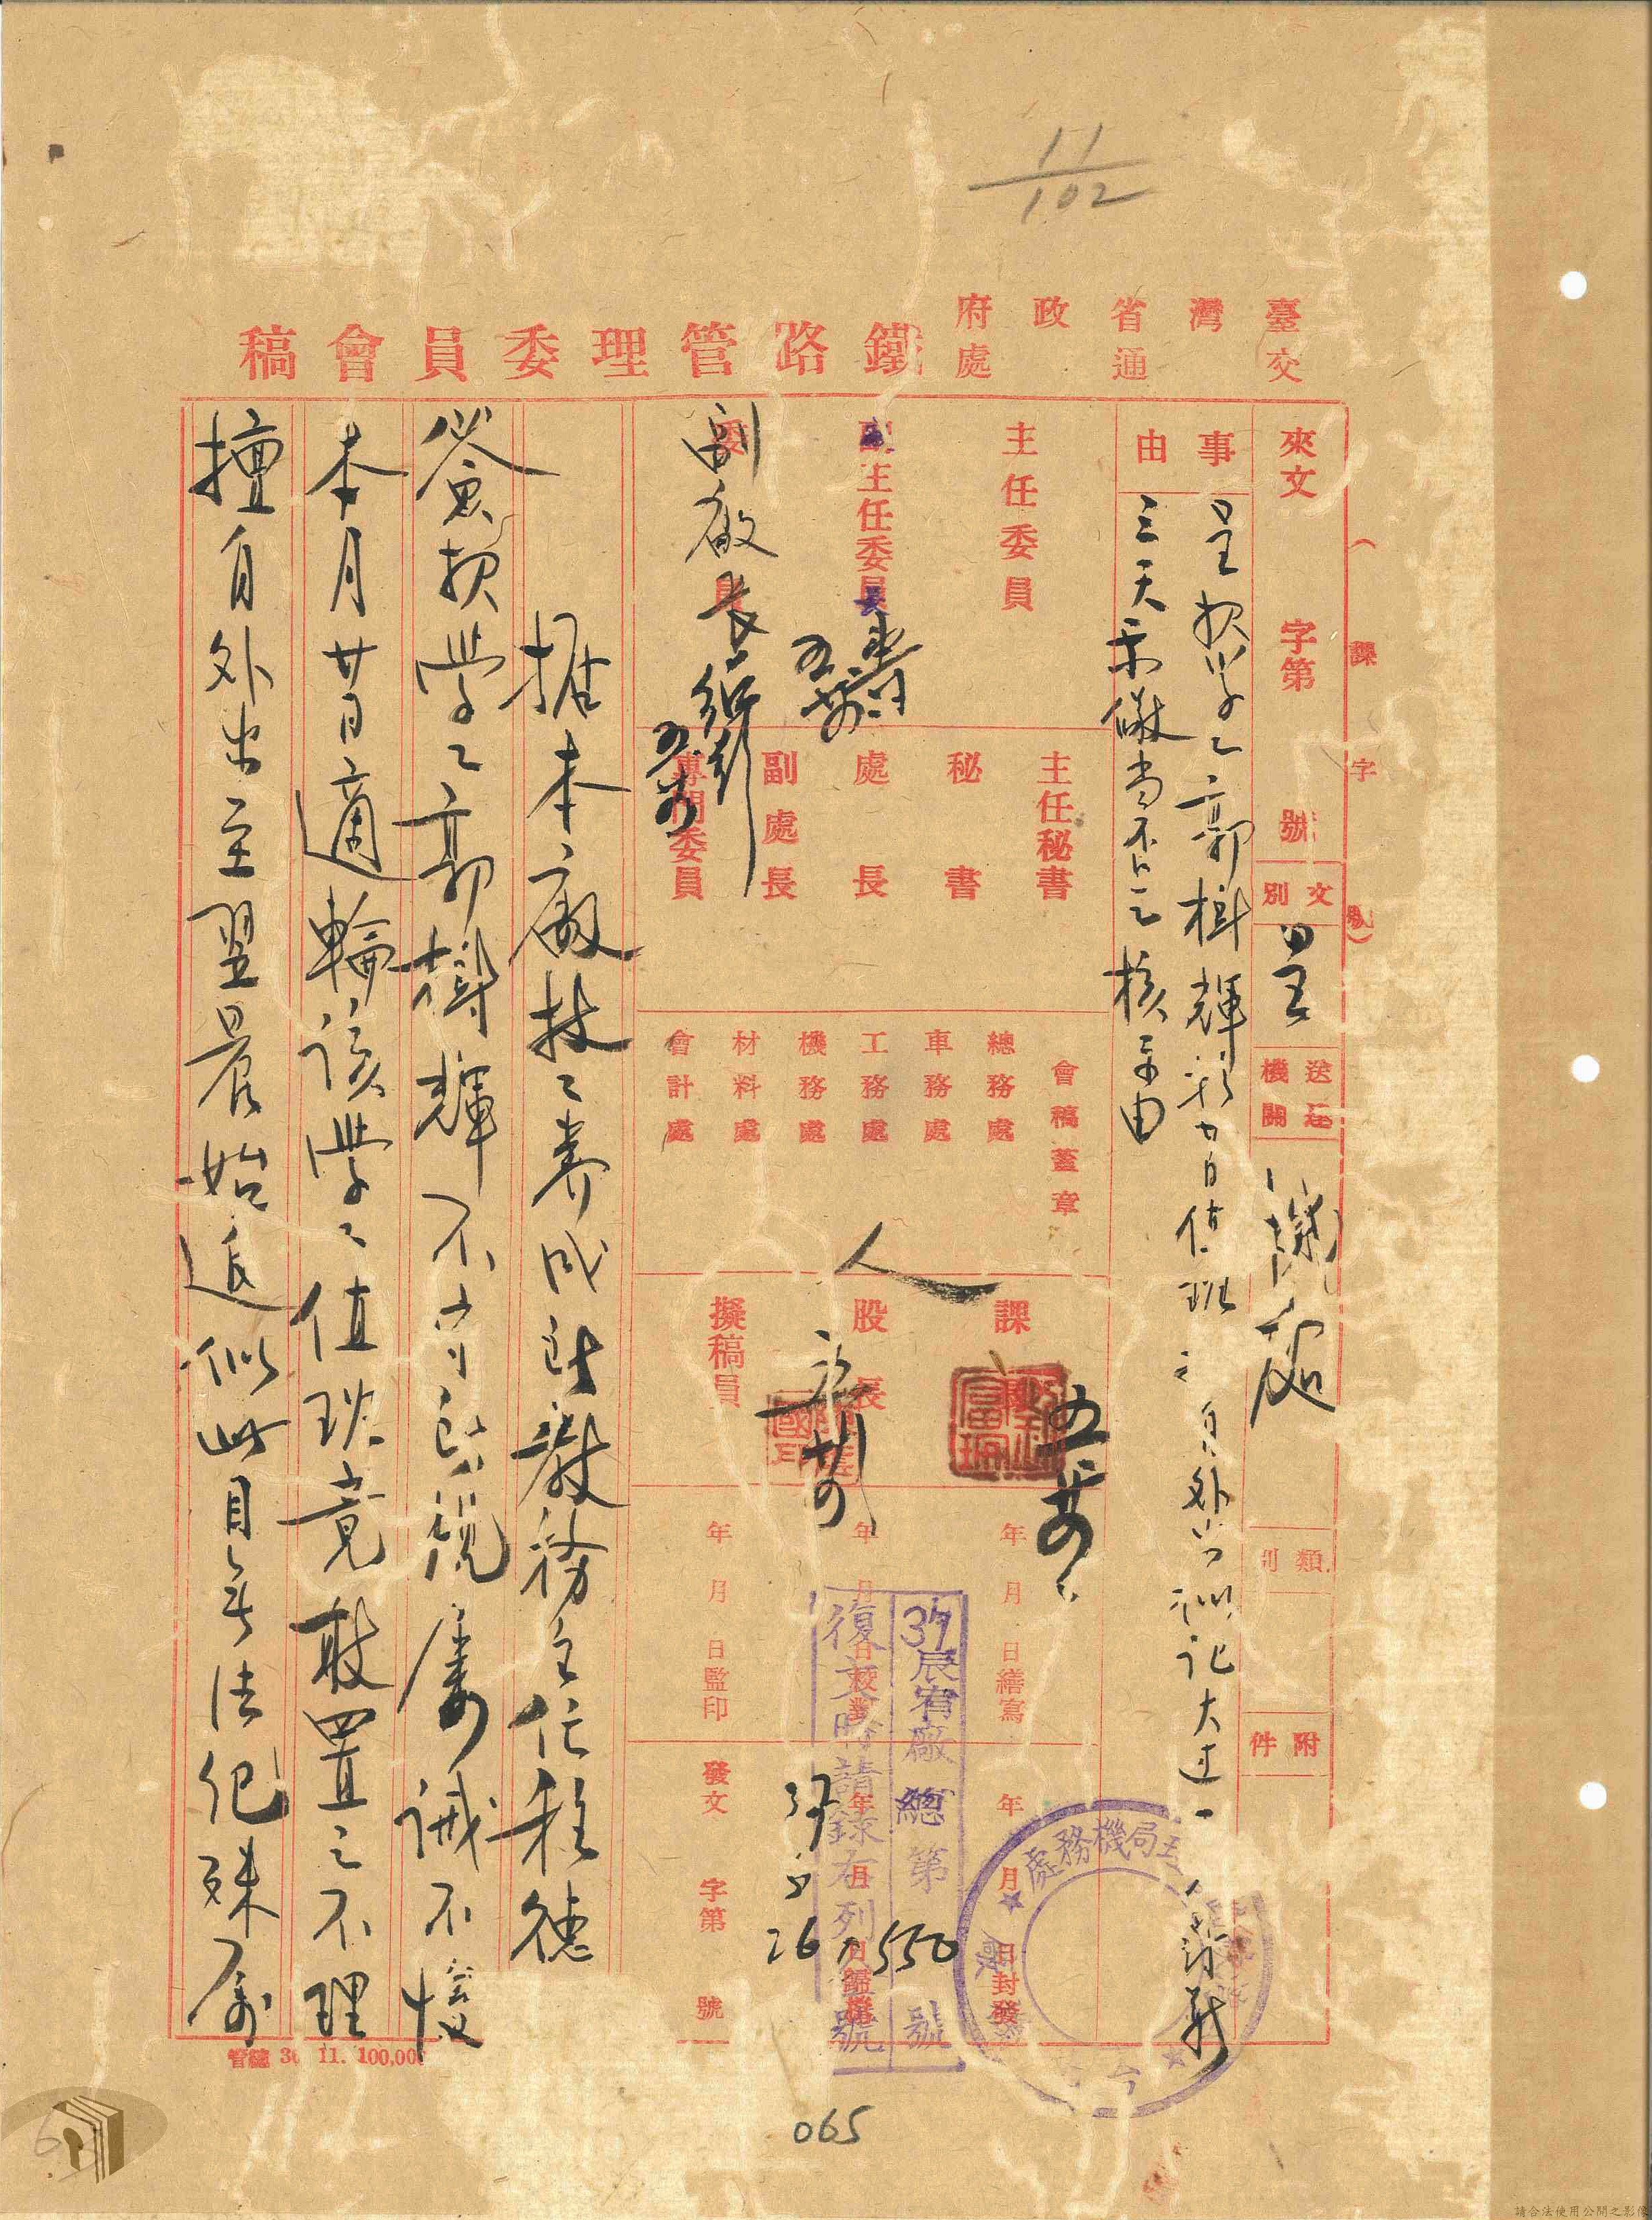 11/102
臺灣省政府
交通處
鐵路管理委員會稿
(課字號)
來文 字第 號
文別 呈
送達機關 機務處
類別
附件
事由
呈報學工郭樹輝於廿日值班
自外出擬記大過一
三天示儆當否乞核示由
主任委員
副主任委員
委員
副廠長
主任秘書
秘書
處長
副處長
專門委員
會稿蓋章
總務處
車務處
工務處
機務處
材料處
會計處
課長
股長
擬稿員
年月日繕寫
年月日校對
年月日監印
年月日封發
年月日歸檔
發文 字第 號
37辰宥廠總第 號
復文時請錄右列日期號
37 5 26 550
處務機局
據本廠技工養成所教務主任程德
簽報學工郭樹輝不守所規屢誡不悛
本月廿日適輪該學工值班竟敢置之不理
擅自外出至翌晨始返似此目無法紀殊屬
管總 36. 11. 100,000
065
請合法使用公開之影像